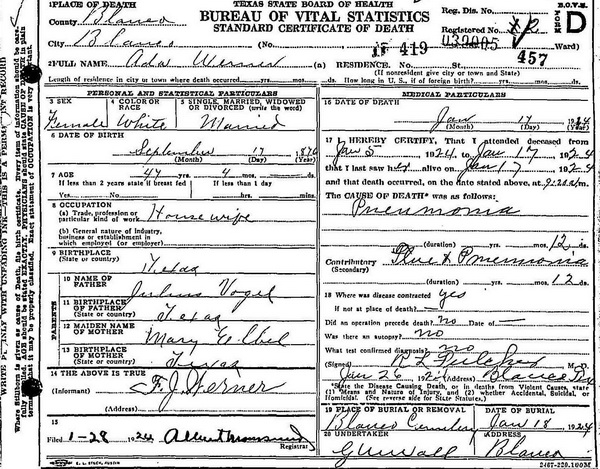 PLACE OF DEATH
TEXAS STATE BOARD OF HEALTH
BUREAU OF VITAL STATISTICS
STANDARD CERTIFICATE OF DEATH
Reg. Dis. No.
Registered No.
D
County Blanco
City Blanco (No. Ward)
419
032005
457
2 FULL NAME Ada Werner (a) RESIDENCE. No.
(If nonresident give city or town and State)
Length of residence in city or town where death occurred yrs. mos. ds. How long in U. S., if of foreign birth? yrs. mos. ds.
PERSONAL AND STATISTICAL PARTICULARS
3 SEX Female
4 COLOR OR RACE White
5 SINGLE, MARRIED, WIDOWED OR DIVORCED (write the word) Married
6 DATE OF BIRTH
September 17 1876
(Month) (Day) (Year)
7 AGE 47 yrs. 4 mos. ds.
If less than 2 years state if breast fed If less than 1 day
Yes No hrs. min.
8 OCCUPATION
(a) Trade, profession or particular kind of work Housewife
(b) General nature of industry, business or establishment in which employed (or employer)
9 BIRTHPLACE (State or country) Texas
PARENTS
10 NAME OF FATHER Julius Vogel
11 BIRTHPLACE OF FATHER (State or country) Texas
12 MAIDEN NAME OF MOTHER Mary
13 BIRTHPLACE OF MOTHER (State or country) Texas
14 THE ABOVE IS TRUE
(Informant) F. J. Werner
(Address)
15
Filed 1-28 1924
Registrar
MEDICAL PARTICULARS
16 DATE OF DEATH
Jan 17 1924
(Month) (Day) (Year)
17 I HEREBY CERTIFY, That I attended deceased from
Jan 5 1924 to Jan 17 1924
that I last saw her alive on Jan 17 1924
and that death occurred, on the date stated above, at m.
The CAUSE OF DEATH* was as follows:
Pneumonia
(duration) yrs. mos. 12 ds.
Contributory (Secondary) Flue & Pneumonia
(duration) yrs. mos. 12 ds.
18 Where was disease contracted yes
if not at place of death?
Did an operation precede death? no Date of
Was there an autopsy? no
What test confirmed diagnosis? no
(Signed)
Jan 26, 192 (Address) Blanco Tex
*State the Disease Causing Death, or in deaths from Violent Causes, state (1) Means and Nature of Injury, and (2) whether Accidental, Suicidal, or Homicidal. (See reverse side for State Statutes.)
19 PLACE OF BURIAL OR REMOVAL DATE OF BURIAL
Blanco Cemetery Jan 18 1924
20 UNDERTAKER ADDRESS
Blanco
2467-220-100M